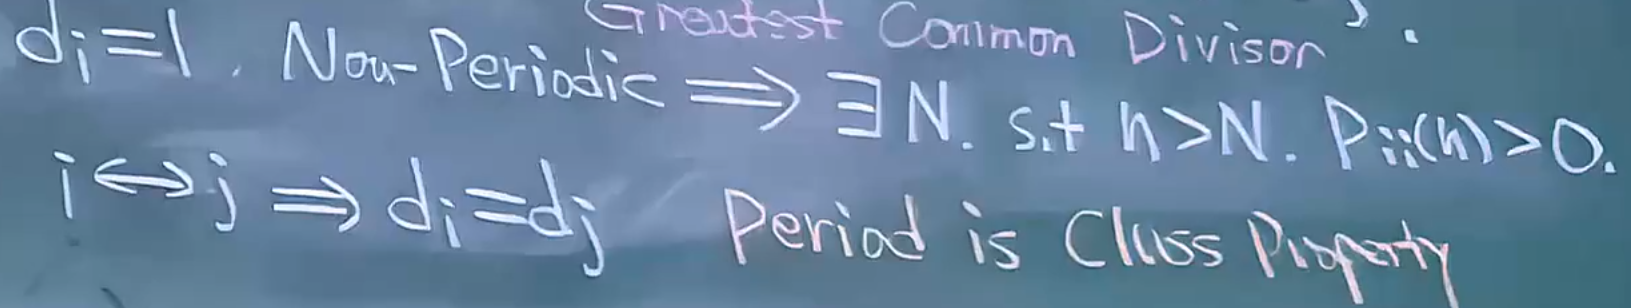 Greatest Common Divisor
di=1. Non-Periodic ⟹ ∃N. s.t n>N. Pii(n)>0.
i↔j ⟹ di=dj Period is Class Property